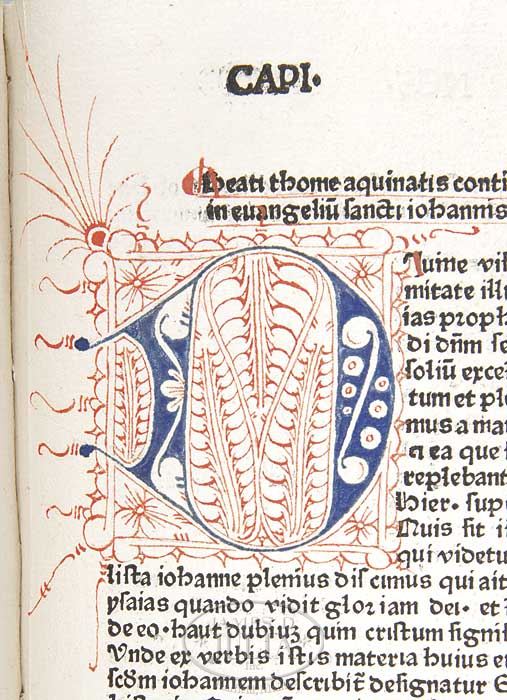 CAPI.
Beati thome aquinatis conti
in euangeliū sancti iohannis
D
Iuine vi
mitate illu
ias proph
di dn̄m se
soliū excel
tum et ple
mus a mai
ei ea que
replebant
Hier. supe
Nuis sit i
qui videtu
lista iohanne plenius dis cimus qui ait
ysaias quando vidit glor iam dei. et
de eo. haut dubiuꝫ quin cristum signifi
Vnde ex verbis istis materia huius e
scd̄m iohannem describiť designatur S